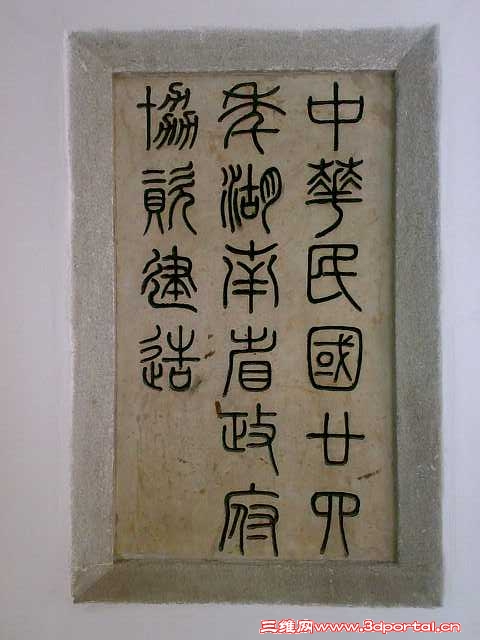 中華民國廿四
年湖南省政府
協資建造
三维网www.3dportal.cn